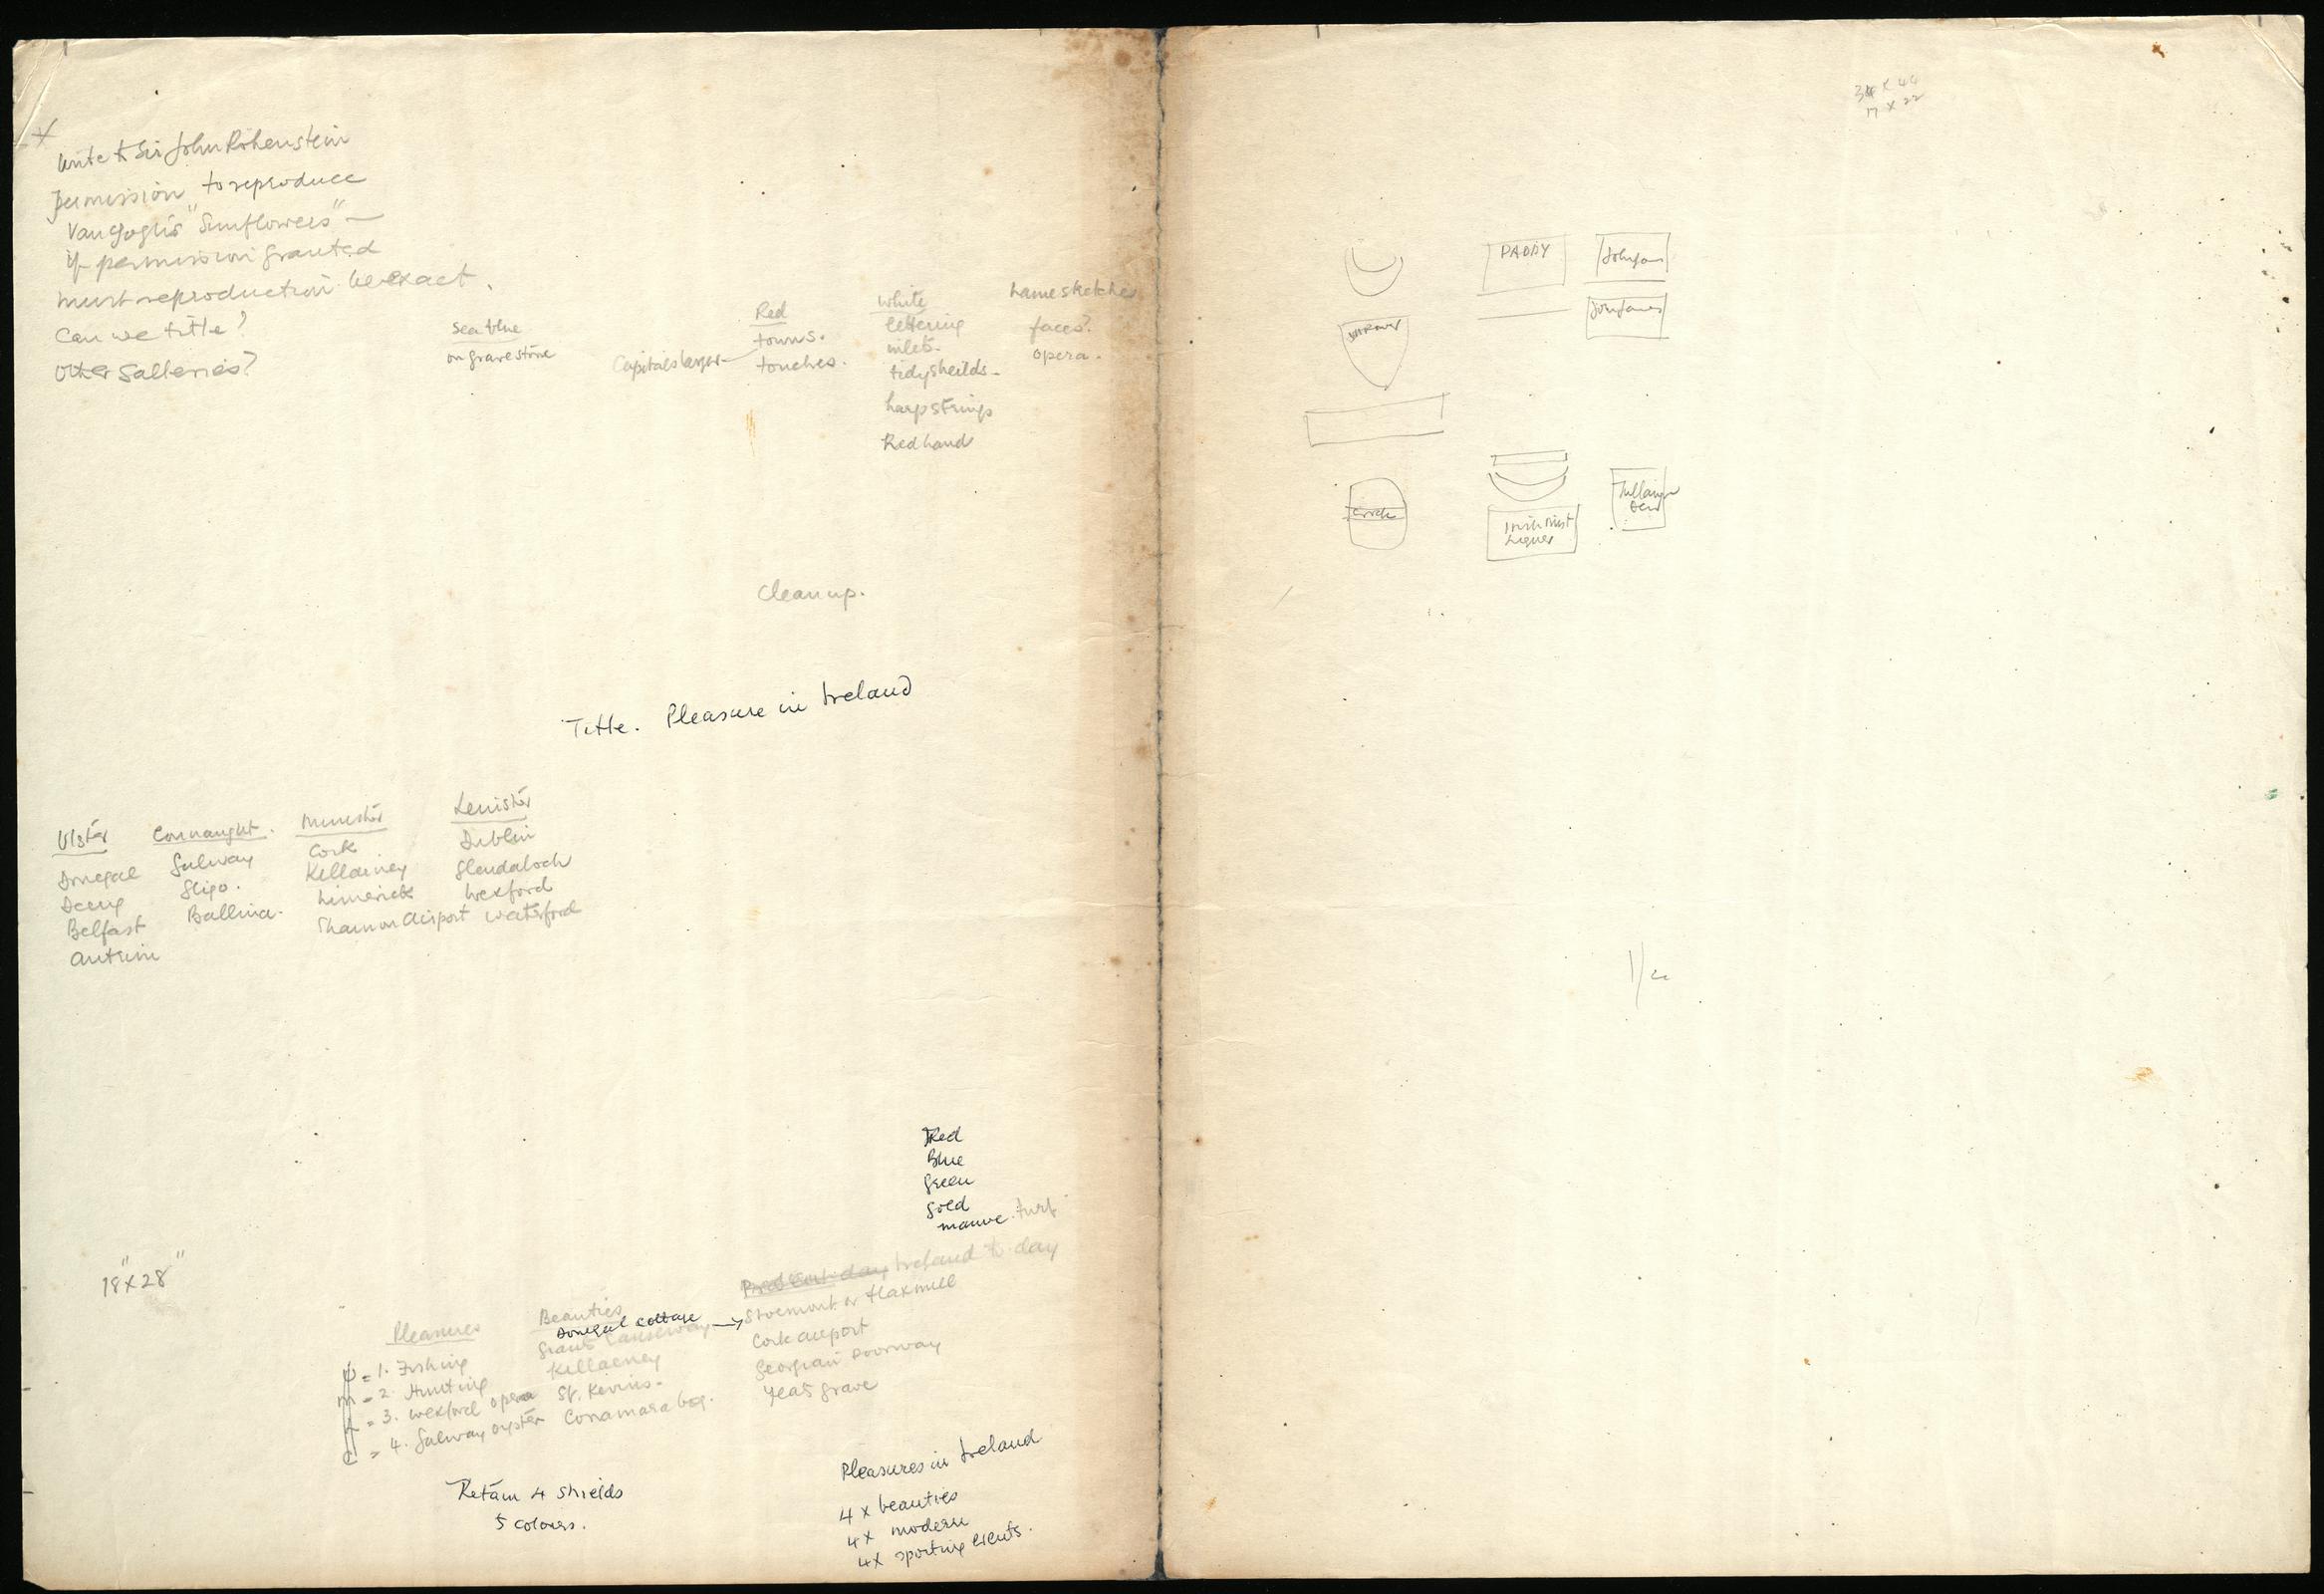 x
Write to Sir John Rohenstein
Permission to reproduce
Van Gogh's "Sunflowers" —
if permission granted
must reproduction be exact.
Can we title?
Other Galleries?
Sea blue
on gravestone
Capitals larger
Red
towns.
touches.
White
lettering
inlets.
tidy sheilds.
harp strings
Red hand
sketches
faces?
opera.
Clean up.
Title. Pleasure in Ireland
Ulster
Donegal
Derry
Belfast
Antrim
Connaught.
Galway
Sligo.
Ballina.
Munster
Cork
Killarney
Limerick
Shannon Airport
Leinster
Dublin
Glendaloch
Wexford
Waterford
Red
Blue
Green
Gold
mauve. turf
18" x 28"
Pleasures
= 1. Fishing
m = 2. Hunting
= 3. Wexford opera
C = 4. Galway oyster
Beauties
Donegal Cottage
Giants Causeway
Killarney
St. Kevins.
Conamara bog.
Present day Ireland to day
Stormont or flaxmill
Cork airport
Georgian Doorway
Yeats grave
Retain 4 shields
5 colours.
Pleasures in Ireland
4 x beauties
4 x modern
4 x sporting events.
34 x 44
17 x 22
PADDY
Irish Mist
Liquer
Tullamore
Dew